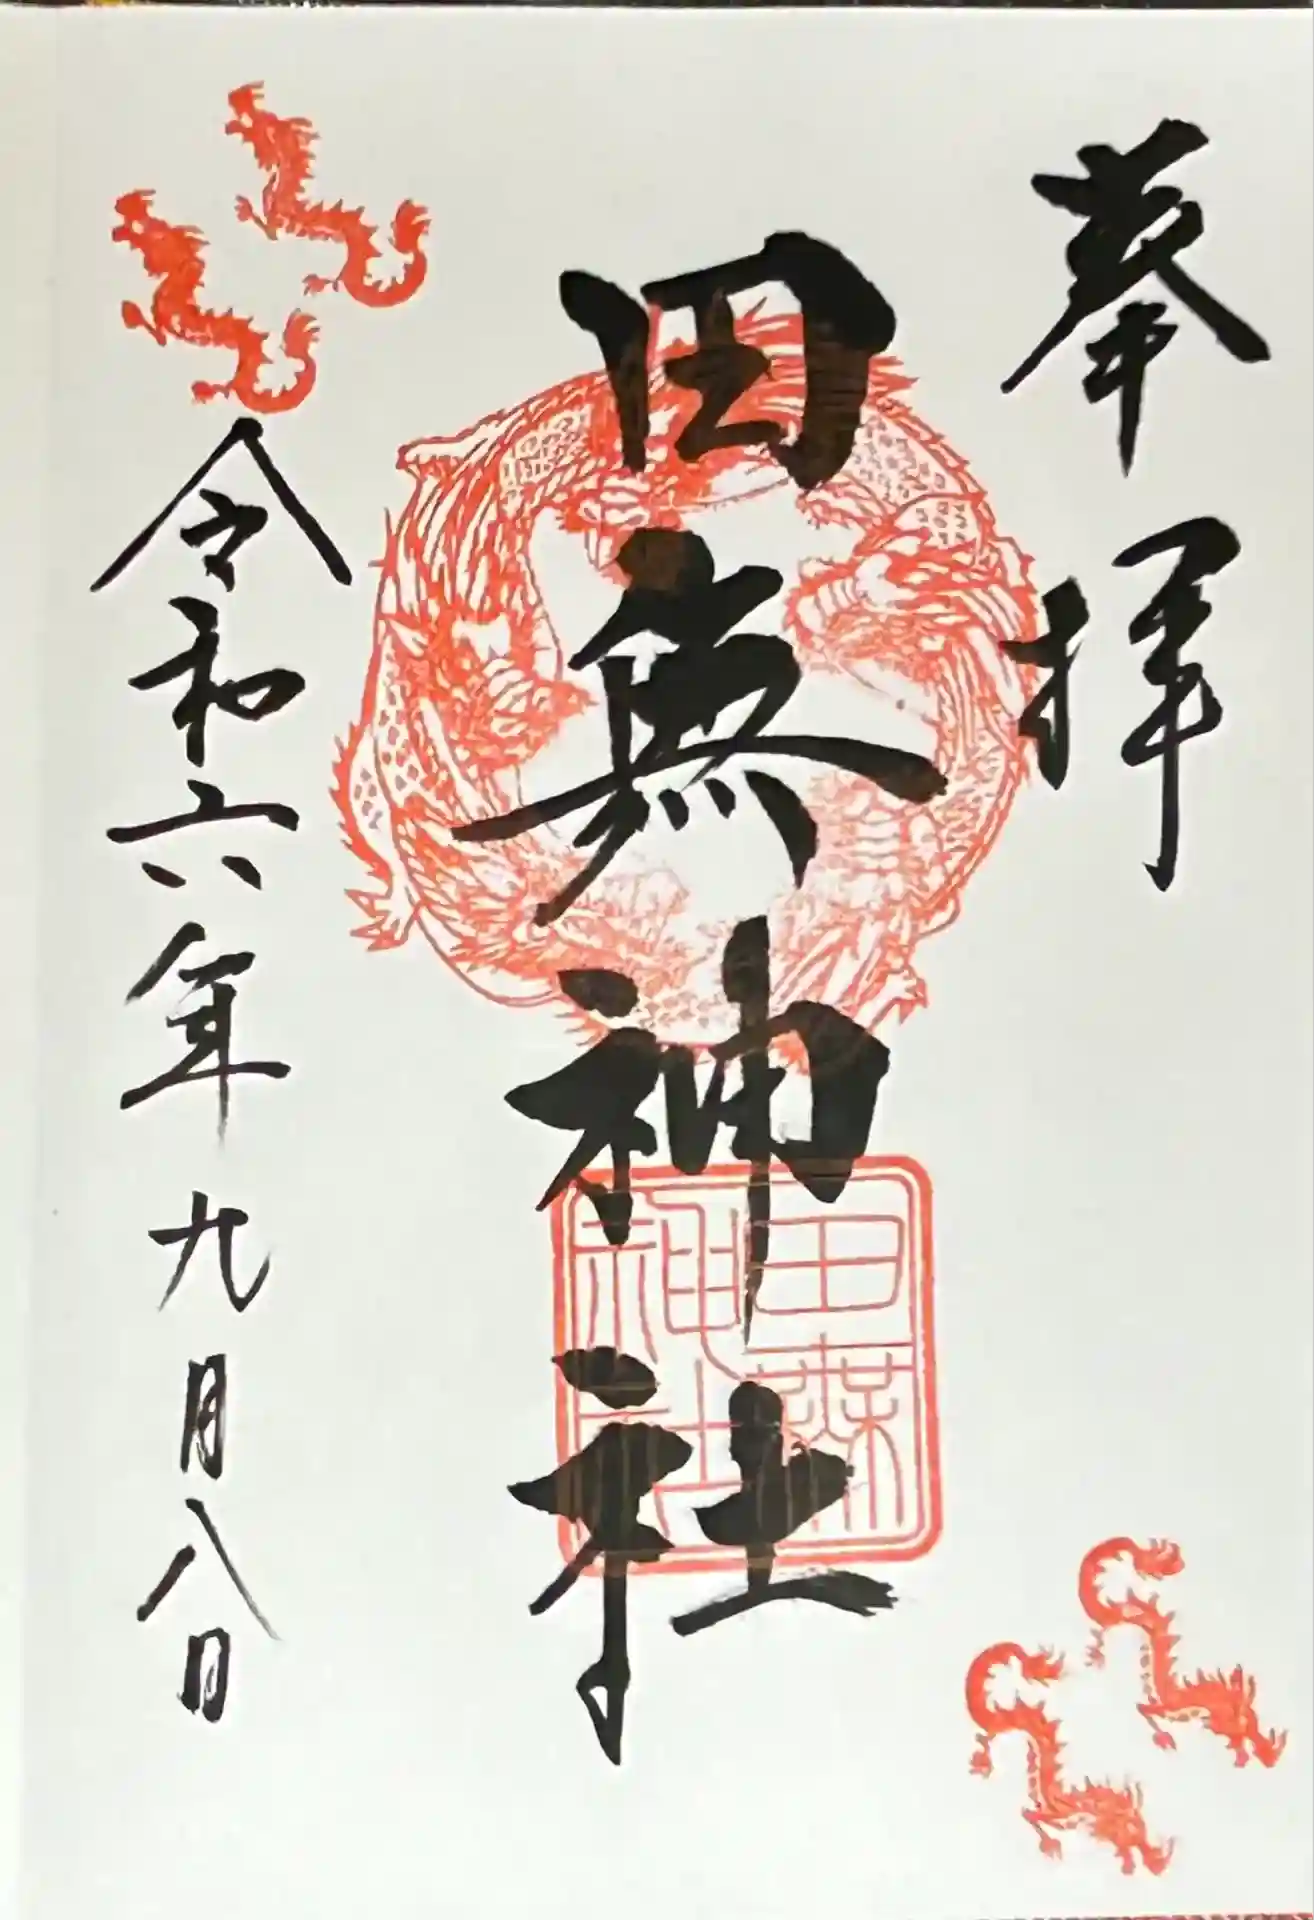 奉拝
田無神社
田無神社
令和六年九月八日